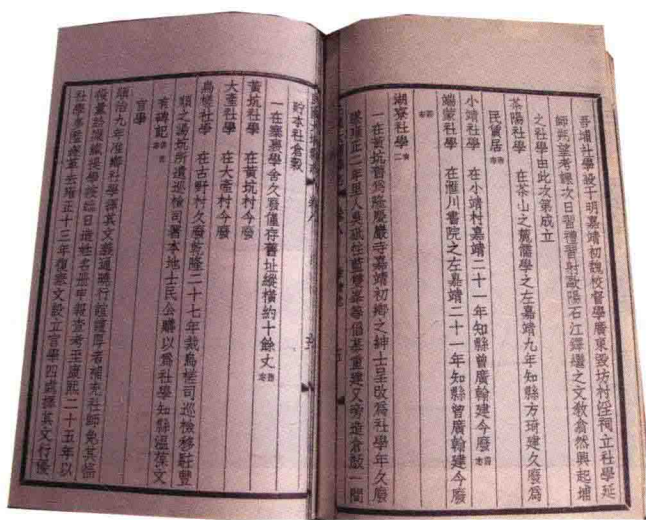 吾埔社學設于明嘉靖初魏校督學廣東毀坊村淫祠立社學延
師朔望考課次日習禮習射歐陽石江鐸繼之文敎翕然興起埔
之社學由此次第成立
茶陽社學　在茶山之麓儒學之左嘉靖九年知縣方琦建久廢爲
民賃居舊志
小靖社學　在小靖村嘉靖二十一年知縣曾廣翰建今廢舊志
端蒙社學　在滙川書院之左嘉靖二十一年知縣曾廣翰建今廢
舊志
湖寮社學二
一在黃坑舊爲隆慶嚴寺嘉靖初鄉之紳士呈改爲社學年久廢
雍正二年里人吳 藍 等倡募重建又旁造倉版一間
貯本社倉穀
一在 學舍久廢僅存舊址縱橫約十餘丈舊志
黃坑社學　在黃坑村今廢
大產社學　在大產村今廢
烏槎社學　在古野村久廢乾隆二十七年裁烏槎司巡檢移駐豐
順之湯坑所遺巡檢司署本地士民公購以爲社學知縣溫葆文
有碑記舊志
官學
順治九年准鄉社學擇其文義通曉行誼謹厚者補充社師免其徭
役量給廩餼提學按臨日造姓名冊申報查考至康熙二十五年以
社學多 革去雍正十三年復察文設立官學四處擇其文行優